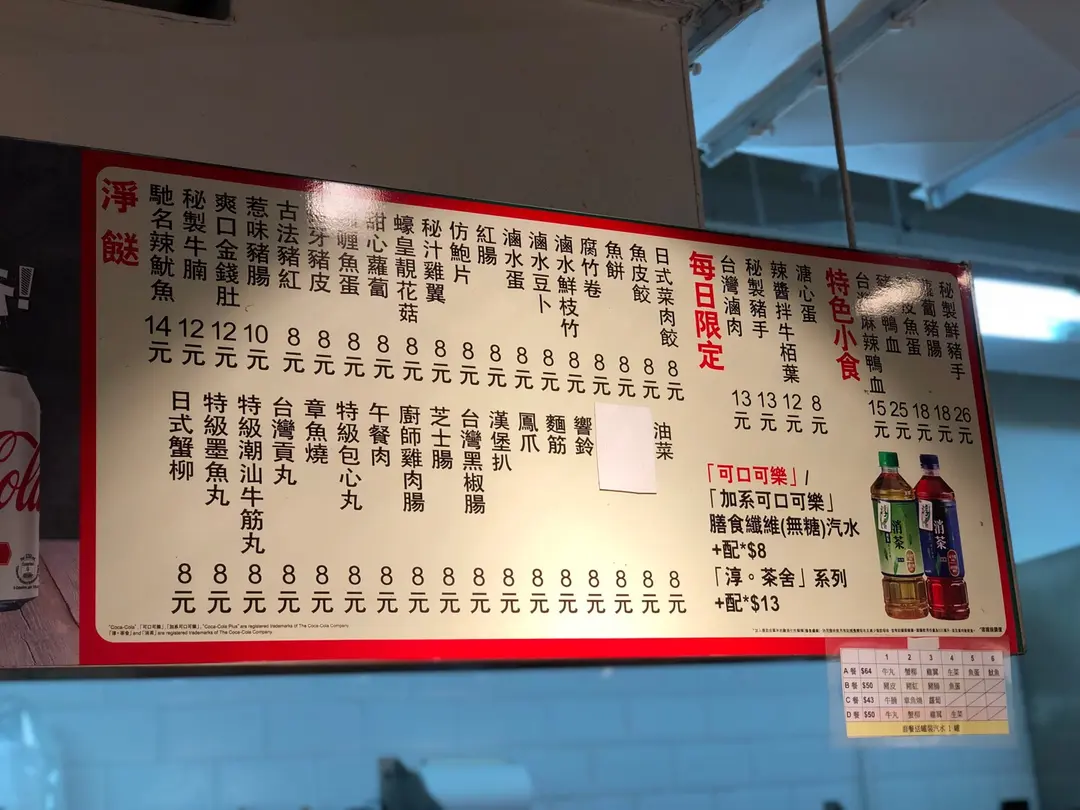 淨餸
馳名辣魷魚 14元
秘製牛腩 12元
爽口金錢肚 12元
惹味豬腸 10元
古法豬紅 8元
豬皮 8元
喱魚蛋 8元
甜心蘿蔔 8元
蠔皇靚花菇 8元
秘汁雞翼 8元
仿鮑片 8元
紅腸 8元
滷水蛋 8元
滷水豆卜 8元
滷水鮮枝竹 8元
腐竹卷 8元
魚餅 8元
魚皮餃 8元
日式菜肉餃 8元
日式蟹柳 8元
特級墨魚丸 8元
特級潮汕牛筋丸 8元
台灣貢丸 8元
章魚燒 8元
特級包心丸 8元
午餐肉 8元
廚師雞肉腸 8元
芝士腸 8元
台灣黑椒腸 8元
漢堡扒 8元
鳳爪 8元
麵筋 8元
響鈴 8元
8元
8元
油菜 8元
每日限定
台灣滷肉 13元
秘製豬手 13元
辣醬拌牛栢葉 12元
溏心蛋 8元
特色小食
台灣麻辣鴨血 15元
鴨血 25元
皮魚蛋 18元
蘿蔔豬腸 18元
秘製鮮豬手 26元
「可口可樂」/
「加系可口可樂」
膳食纖維(無糖)汽水
+配*$8
「淳。茶舍」系列
+配*$13
Cola
1 2 3 4 5 6
A餐 $64 牛丸 蟹柳 雞翼 生菜 魚蛋 魷魚
B餐 $50 豬皮 豬紅 豬腸 魚蛋
C餐 $43 牛腩 章魚燒 蘿蔔
D餐 $50 牛丸 蟹柳 雞翼 生菜